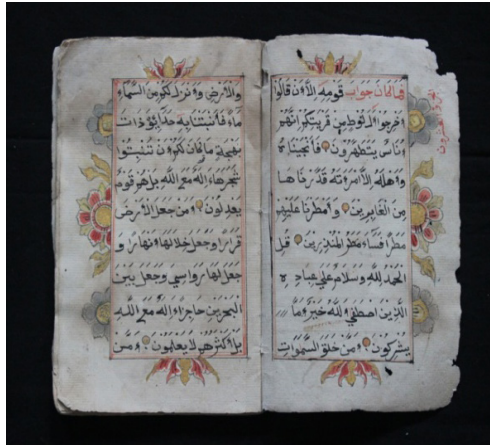 فَمَا كَانَ جَوَابَ قَوْمِهِ إِلَّا أَنْ قَالُوا
أَخْرِجُوا آلَ لُوطٍ مِنْ قَرْيَتِكُمْ إِنَّهُمْ
أُنَاسٌ يَتَطَهَّرُونَ فَأَنْجَيْنَاهُ
وَأَهْلَهُ إِلَّا امْرَأَتَهُ قَدَّرْنَاهَا
مِنَ الْغَابِرِينَ وَأَمْطَرْنَا عَلَيْهِمْ
مَطَرًا فَسَاءَ مَطَرُ الْمُنْذَرِينَ قُلِ
الْحَمْدُ لِلَّهِ وَسَلَامٌ عَلَى عِبَادِهِ
الَّذِينَ اصْطَفَى اللَّهُ خَيْرٌ أَمَّا
يُشْرِكُونَ أَمَّنْ خَلَقَ السَّمَوَاتِ
وَالْأَرْضَ وَأَنْزَلَ لَكُمْ مِنَ السَّمَاءِ
مَاءً فَأَنْبَتْنَا بِهِ حَدَائِقَ ذَاتَ
بَهْجَةٍ مَا كَانَ لَكُمْ أَنْ تُنْبِتُوا
شَجَرَهَا أَإِلَهٌ مَعَ اللَّهِ بَلْ هُمْ قَوْمٌ
يَعْدِلُونَ أَمَّنْ جَعَلَ الْأَرْضَ
قَرَارًا وَجَعَلَ خِلَالَهَا أَنْهَارًا وَ
جَعَلَ لَهَا رَوَاسِيَ وَجَعَلَ بَيْنَ
الْبَحْرَيْنِ حَاجِزًا أَإِلَهٌ مَعَ اللَّهِ
بَلْ أَكْثَرُهُمْ لَا يَعْلَمُونَ أَمَّنْ